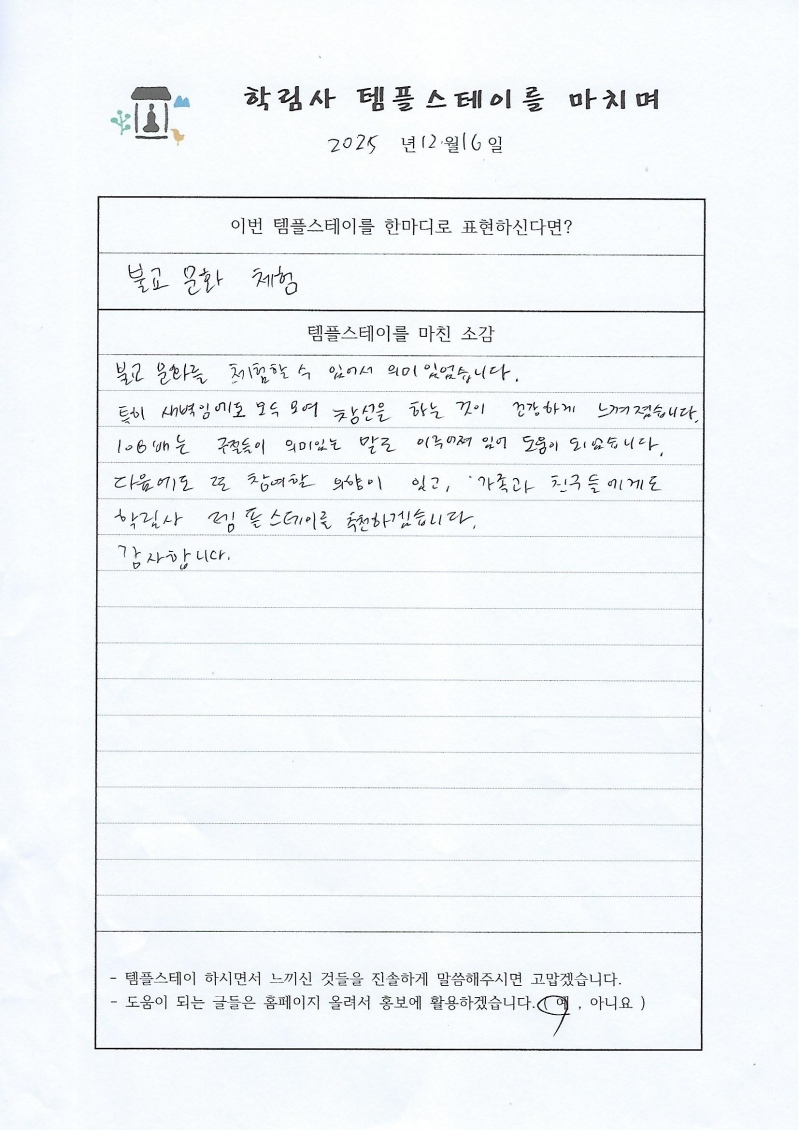 학림사 템플스테이를 마치며
2025 년 12 월 16 일
이번 템플스테이를 한마디로 표현하신다면?
불교 문화 체험
템플스테이를 마친 소감
불교 문화를 체험할 수 있어서 의미 있었습니다.
특히 새벽임에도 모두 모여 참선을 하는 것이 건강하게 느껴졌습니다.
108배는 구절들이 의미있는 말로 이루어져 있어 도움이 되었습니다.
다음에도 또 참여할 의향이 있고, 가족과 친구들에게도
학림사 템플스테이를 추천하겠습니다.
감사합니다.
- 템플스테이 하시면서 느끼신 것들을 진솔하게 말씀해주시면 고맙겠습니다.
- 도움이 되는 글들은 홈페이지 올려서 홍보에 활용하겠습니다. ( 예 , 아니요 )